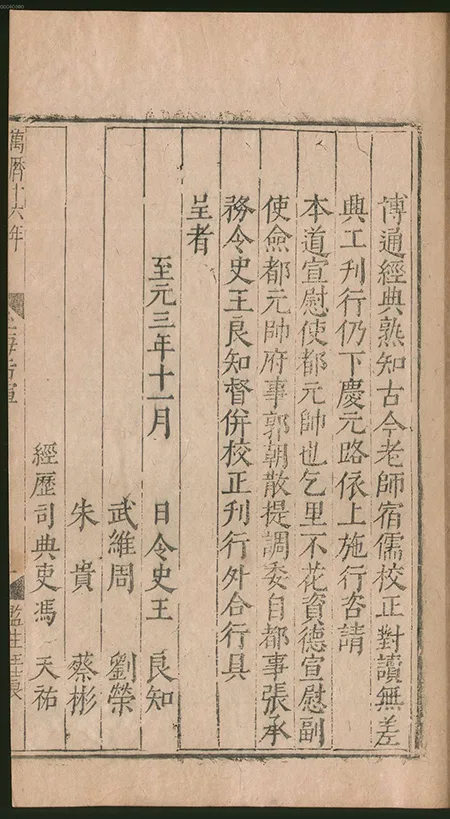 博通經典熟知古今老師宿儒校正對讀無差
興工刊行仍下慶元路依上施行咨請
本道宣慰使都元帥也乞里不花資德宣慰副
使僉都元帥府事郭朝散提調委自都事張承
務令史王良知督併校正刊行外合行具
呈者
至元三年十一月 日令史王 良知
武維周 劉榮
朱 貴 蔡彬
經歷司典吏馮 天祐
萬曆十六年
監生